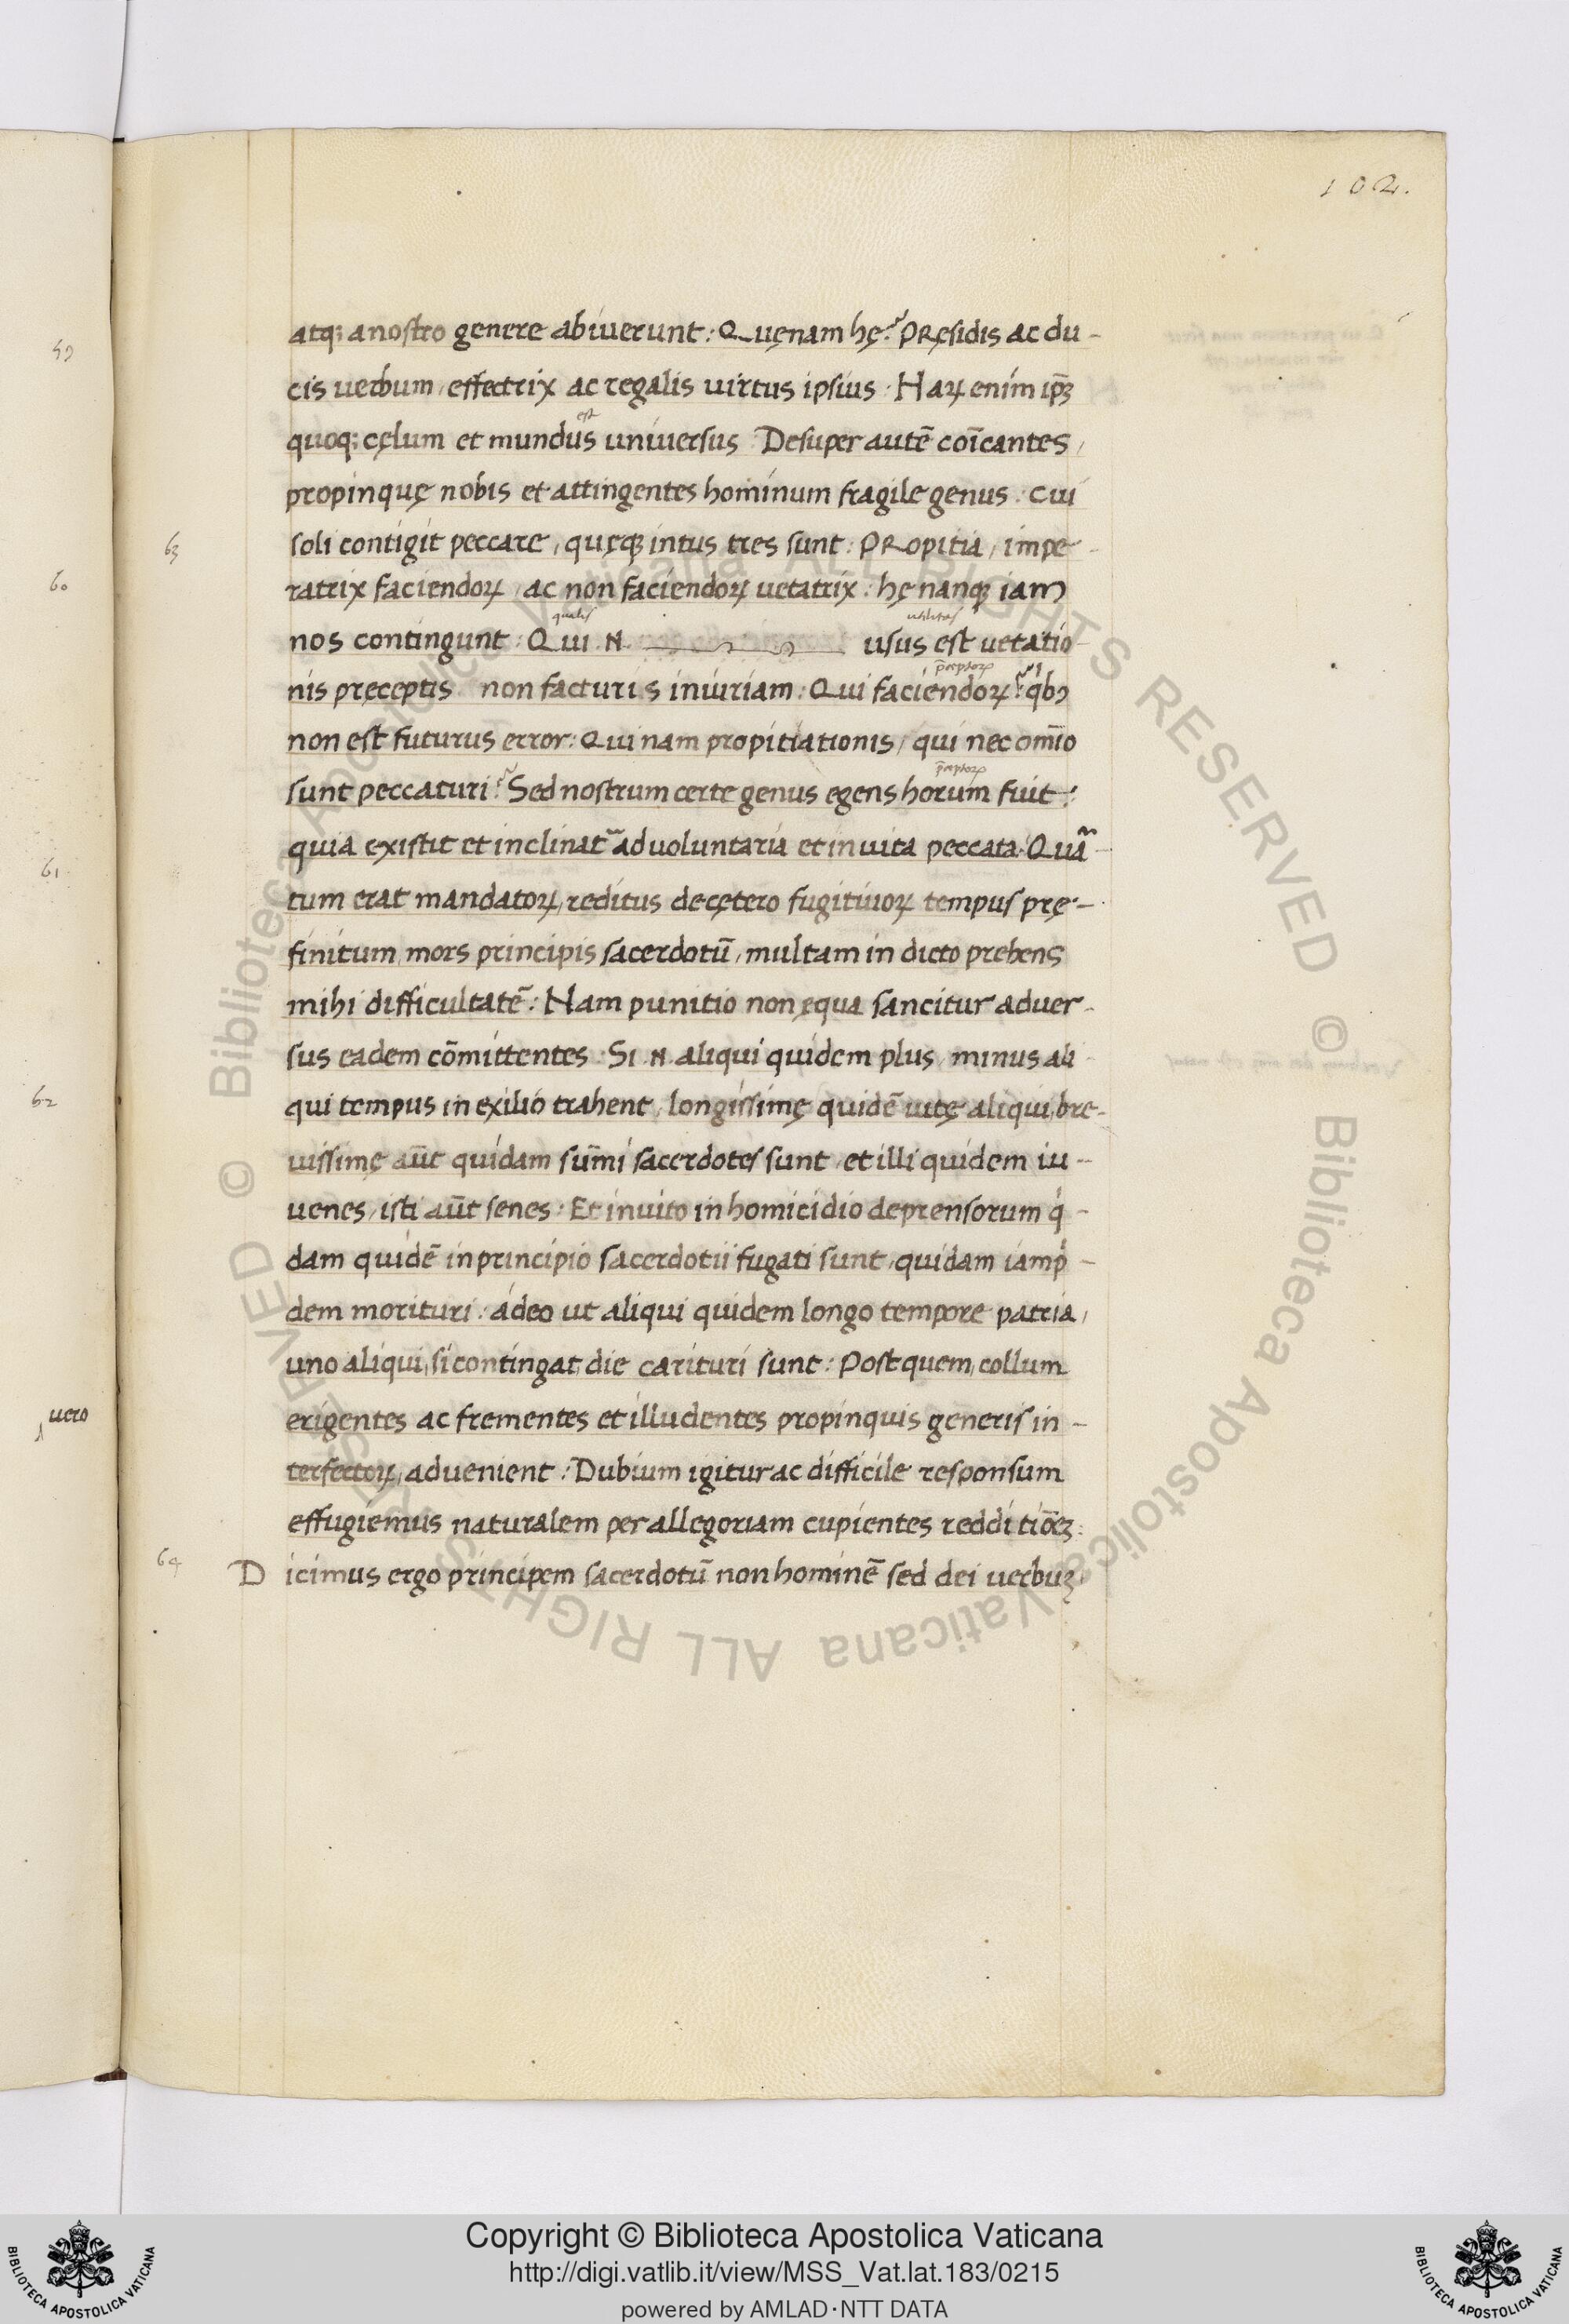 102.
atq; a nostro genere abiuerunt: Quęnam hę? PRęsidis ac du-
cis uerbum, effectrix ac regalis uirtus ipsius. Haꝝ enim ip̄ꝫ
est
quoq; cęlum et mundus uniuersus Desuper autē coīcantes,
propinquę nobis et attingentes hominum fragile genus. Cui
63 soli contigit peccare, quęqꝫ intus tres sunt: PRopitia, impe-
ratrix faciendoꝝ, ac non faciendoꝝ uetatrix: hę nanqꝫ iam
qualis utilitas
nos contingunt: Qui .N. usus est uetatio-
p̄ceptoꝝ
nis pręceptis non facturis iniuriam: Qui faciendoꝝ? qbꝰ
non est futurus error: Quinam propitiationis, qui nec om̄io
p̄ceptoꝝ
sunt peccaturi? Sed nostrum certe genus egens horum fuit:
quia existit et inclinat᷑ ad voluntaria et inuita peccata. Quā-
tum erat mandatoꝝ, reditus decętero fugitiuoꝝ tempus prę-
finitum, mors principis sacerdotū, multam in dicto prebens
mihi difficultatē: Nam punitio non ęqua sancitur aduer-
sus eadem cōmittentes: Si .N. aliqui quidem plus, minus ali-
qui tempus in exilio trahent, longissimę quidē uitę aliqui, bre-
uissimę aūt quidam sum̄i sacerdotes sunt, et illi quidem iu-
uenes, isti aūt senes: Et inuito in homicidio deprensorum q̇-
dam quidē in principio sacerdotii fugati sunt, quidam iamp̍-
dem morituri: ádeo ut aliqui quidem longo tempore patria,
uno aliqui, si contingat, die carituri sunt: Post quem, collum
erigentes ac frementes et illudentes propinquis generis in-
terfectoꝝ, aduenient: Dubium igitur ac difficile responsum
effugiemus naturalem per allegoriam cupientes redditiōēꝫ:
64 Dicimus ergo principem sacerdotū non hominē sed dei uerbuꝫ
59
60
61
62
uero
Copyright © Biblioteca Apostolica Vaticana
http://digi.vatlib.it/view/MSS_Vat.lat.183/0215
powered by AMLAD·NTT DATA
BIBLIOTECA APOSTOLICA VATICANA
BIBLIOTECA APOSTOLICA VATICANA
© Biblioteca Apostolica Vaticana ALL RIGHTS RESERVED
© Biblioteca Apostolica Vaticana ALL RIGHTS RESERVED